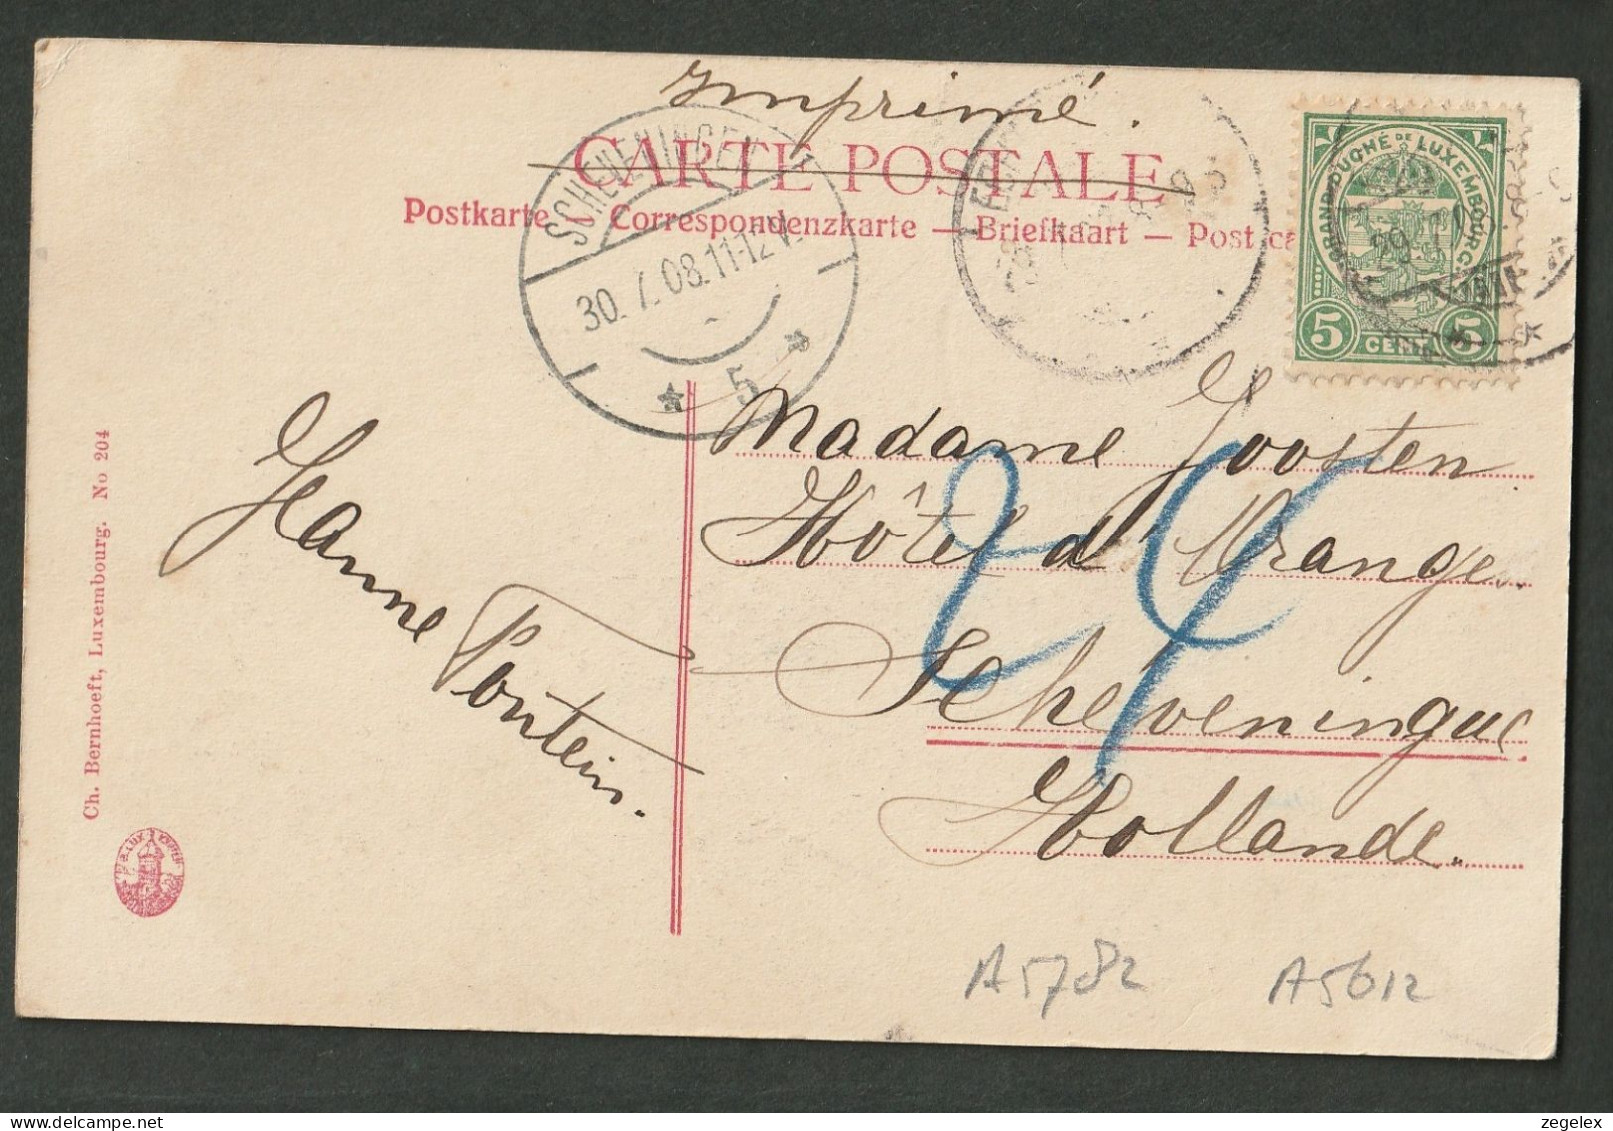 Imprimé.
CARTE POSTALE
Postkarte — Correspondenzkarte — Briefkaart — Post ca
SCHEVENINGEN
30. 7. 08. 11-12 V.
5
GRAND-DUCHÉ DE LUXEMBOURG
29.7.
5 CENT. 5
Madame Joosten
Hôtel d'Orange.
Scheveningue
Hollande.
24
Jeanne
Ch. Bernhoeft, Luxembourg. No 204
A5782
A5612
zegelex